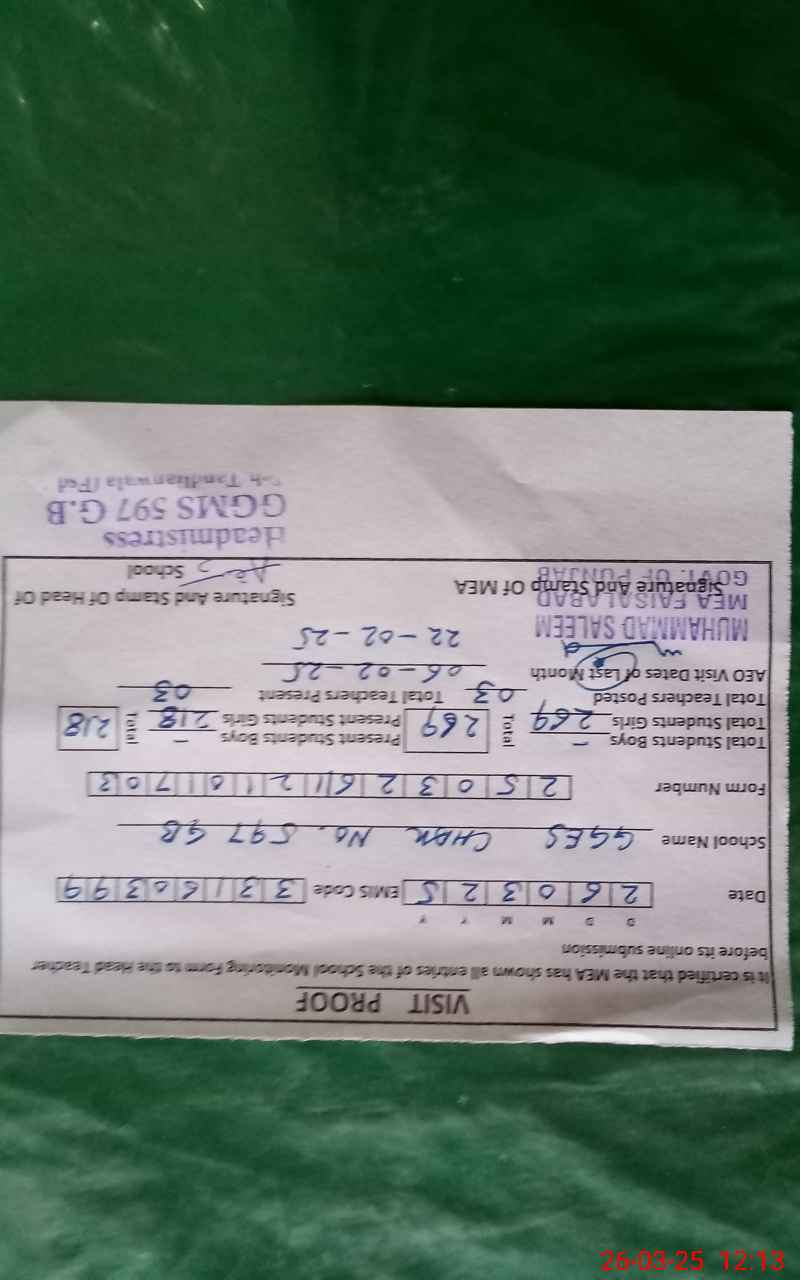 VISIT PROOF
It is certified that the MEA has shown all entries of the School Monitoring Form to the Head Teacher
before its online submission
D D M M Y Y
Date 2 6 0 3 2 5 EMIS Code 3 3 1 6 0 3 9 9
School Name GGES CHAK No. 597 GB
Form Number 2 5 0 3 2 6 1 1 2 1 0 1 7 0 3
Total Students Boys – Present Students Boys –
Total Students Girls 269 Total 269 Present Students Girls 218 Total 218
Total Teachers Posted 03 Total Teachers Present 03
AEO Visit Dates of Last Month 06-02-25
22-02-25
MUHAMMAD SALEEM
MEA FAISALABAD
GOVT. OF PUNJAB
Signature And Stamp Of MEA
Signature And Stamp Of Head Of
School
Headmistress
GGMS 597 G.B
Teh. Tandlianwala (Fsd
26-03-25 12:13